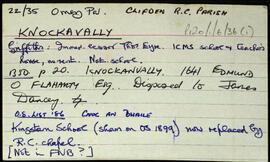 22/35 Omey Par. CLIFDEN R.C. PARISH
KNOCKAVALLY
P120/1/6/36(1)
Griffiths: Immed. lessor Thos Eyre. ICMS school & teachers
house, no rent. Nat. school.
BSD p 20. KNOCKANVALLY. 1641 EDMUND
O FLAHARTY Esq. Disposed to James
Darcy
O.S. LIST '86 CNOC AN BHAILE
Kingstown School (shown on OS 1899) now replaced by
R.C. chapel.
[NOT in FNB?]